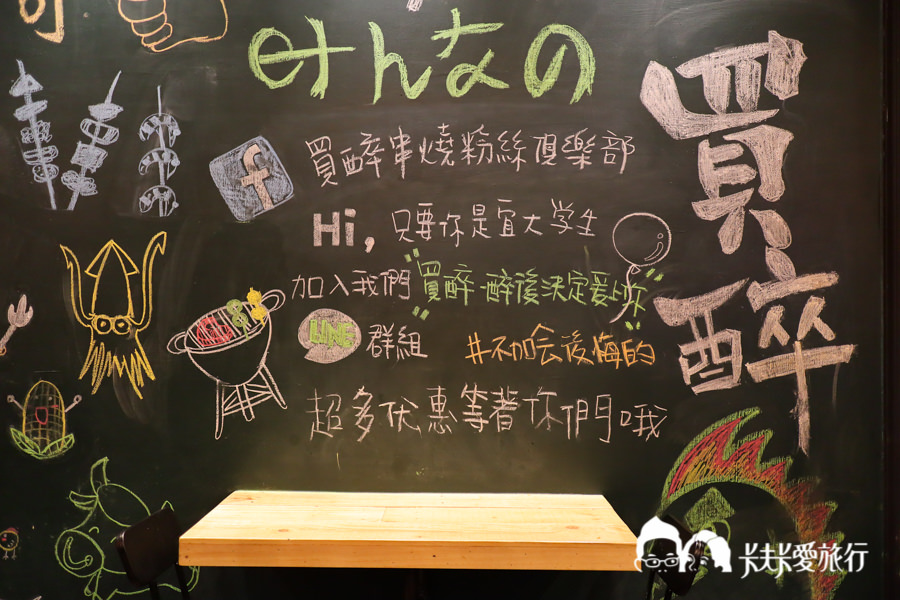 せんなの
買醉
f 買醉串燒粉絲俱樂部
Hi, 只要你是宜大学生
加入我們"買醉-醉後決定愛上你"
LINE 群組 #不加会後悔的
超多优惠等著你們哦
卡夫卡愛旅行